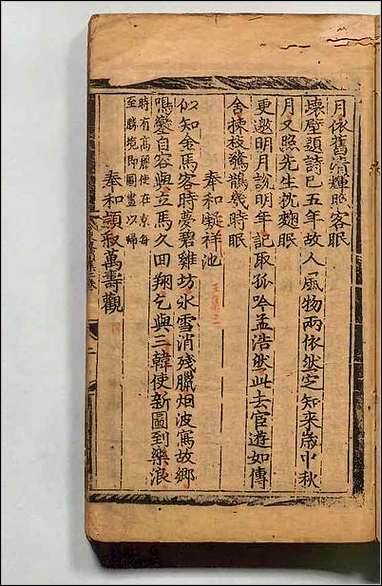 月依舊滿輝照客眠
壞壁題詩已五年故人風物兩依然定知来歳中秋
月又照先生扰麹眠
更邀明月說明年記取孤吟孟浩然此去官遊如傳
舍揀枝驚鵲幾時眠
奉和凝祥池
似知金馬客時夢碧雞坊氷雪消殘臘烟波寫故鄉
鳴鑾自容與立馬久回翔乞與三韓使新圖到樂浪
時有高麗使在京每
至勝境即圖畫以歸
奉和頴叔萬壽觀